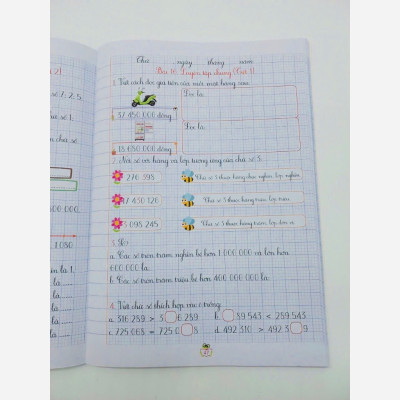 2)
Thứ ngày tháng năm
Bài 16: Luyện tập chung (Tiết 1)
1. Viết cách đọc giá tiền của mỗi mặt hàng sau.
Đọc là:
37 450 000 đồng
Đọc là:
15 650 000 đồng
2. Nối số với hàng và lớp tương ứng của chữ số 5.
276 598
Chữ số 5 thuộc hàng chục nghìn, lớp nghìn.
17 430 120
Chữ số 5 thuộc hàng trăm, lớp
5 098 245
Chữ số 5 thuộc hàng trăm, lớp đơn vị.
3. Số?
a. Các số tròn trăm nghìn bé hơn 1 000 000 và lớn hơn
600 000 là:
b. Các số tròn trăm triệu bé hơn 400 000 000 là:
4. Viết chữ số thích hợp vào ô trống.
a. 316 259 > 3 6 259 b. 59 543 < 259 543
c. 725 065 = 725 0 5 d. 492 310 > 492 3 9